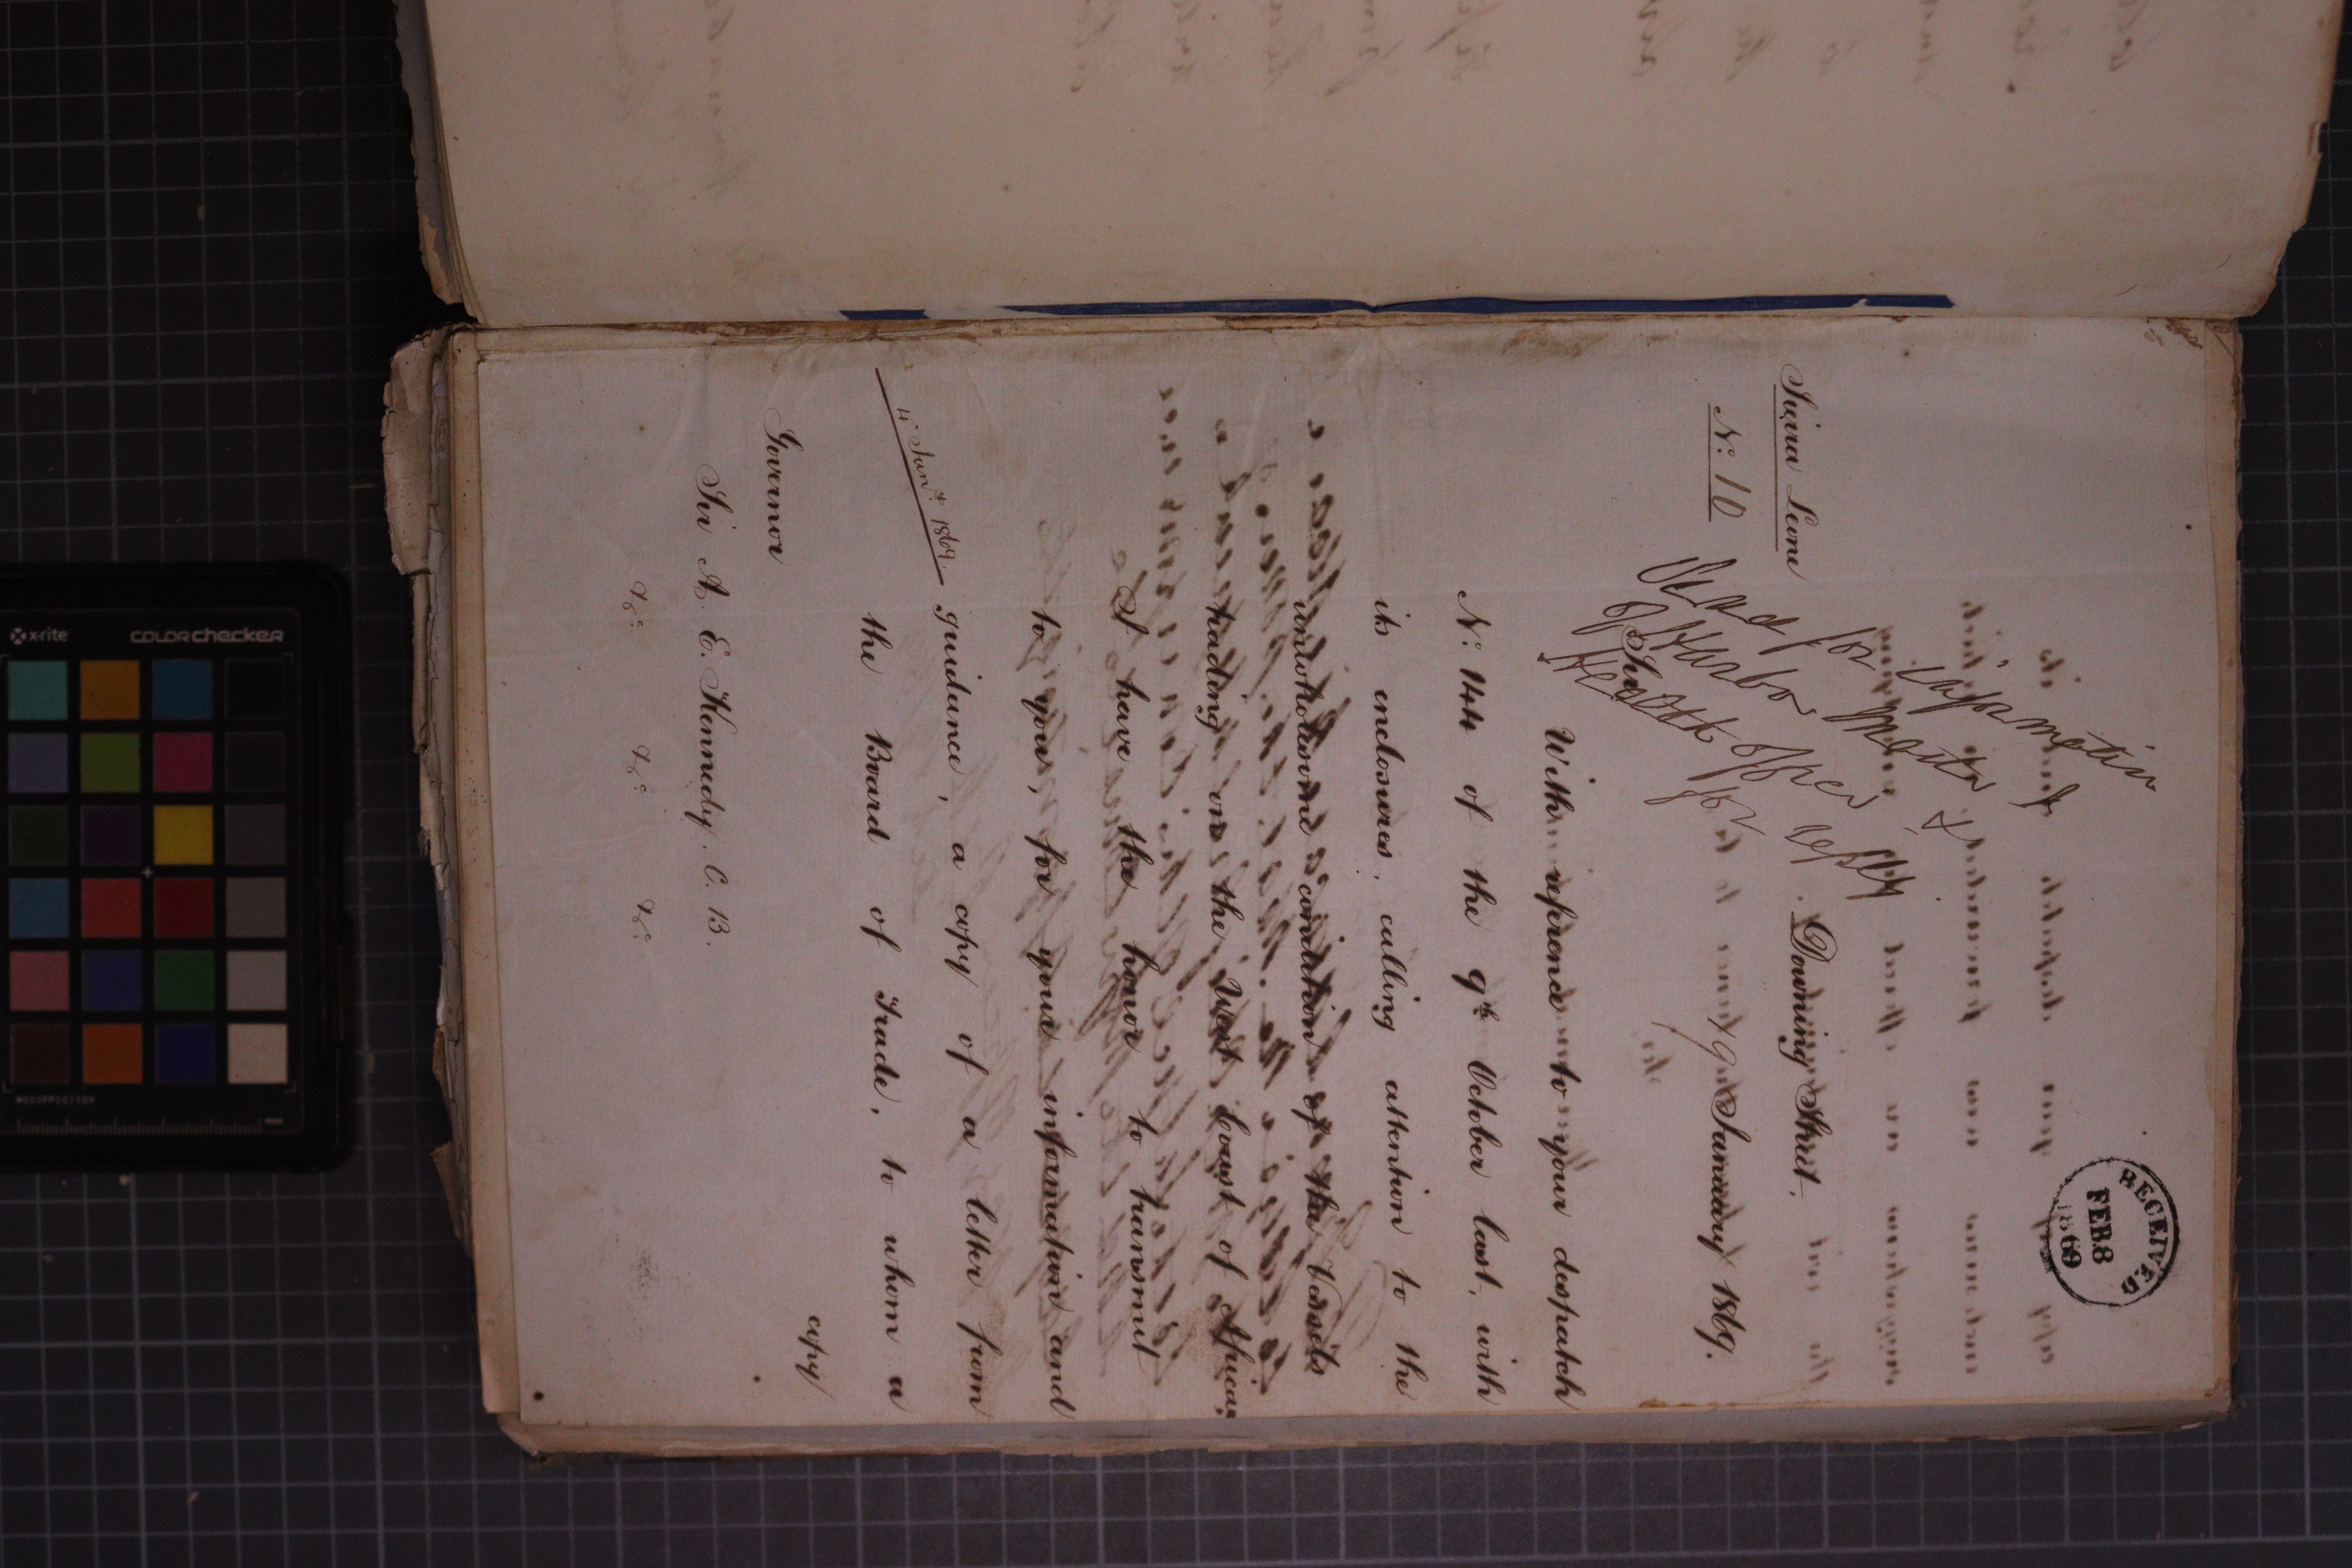 RECEIVED
FEB 8
1869
Sierra Leone
Nº 10
Downing Street.
19 January 1869.
Read for information
of Harbor Master &
Health Officer
for
Sir
With reference to your despatch
Nº 144 of the 9th October last, with
its enclosures, calling attention to the
unwholesome condition of the Vessels
trading on the West Coast of Africa,
I have the honor to transmit
to you, for your information and
4 Jany 1869.
guidance, a copy of a letter from
the Board of Trade, to whom a
copy
Governor
Sir A. E. Kennedy. C. B.
&c &c &c
x-rite
colorchecker